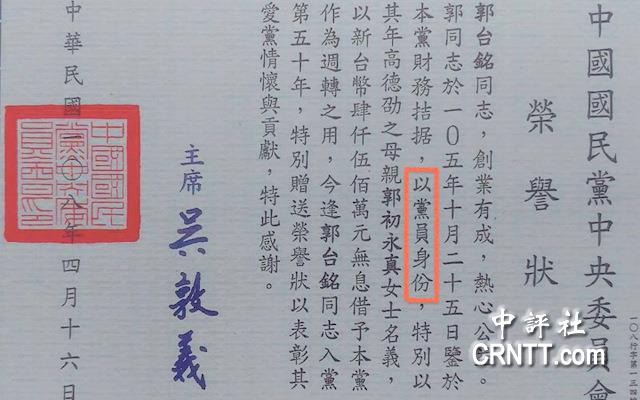 中國國民黨中央委員會
榮譽狀
郭台銘同志，創業有成，熱心公。
郭同志於一0五年十月二十五日鑒於
本黨財務拮据，以黨員身份，特別以
其年高德劭之母親郭初永真女士名義，
以新台幣肆仟伍佰萬元無息借予本黨
作為週轉之用，今逢郭台銘同志入黨
第五十年，特別贈送榮譽狀以表彰其
愛黨情懷與貢獻，特此感謝。
主席 吳敦義
中華民國一〇八年四月十六日
中評社
CRNTT.com